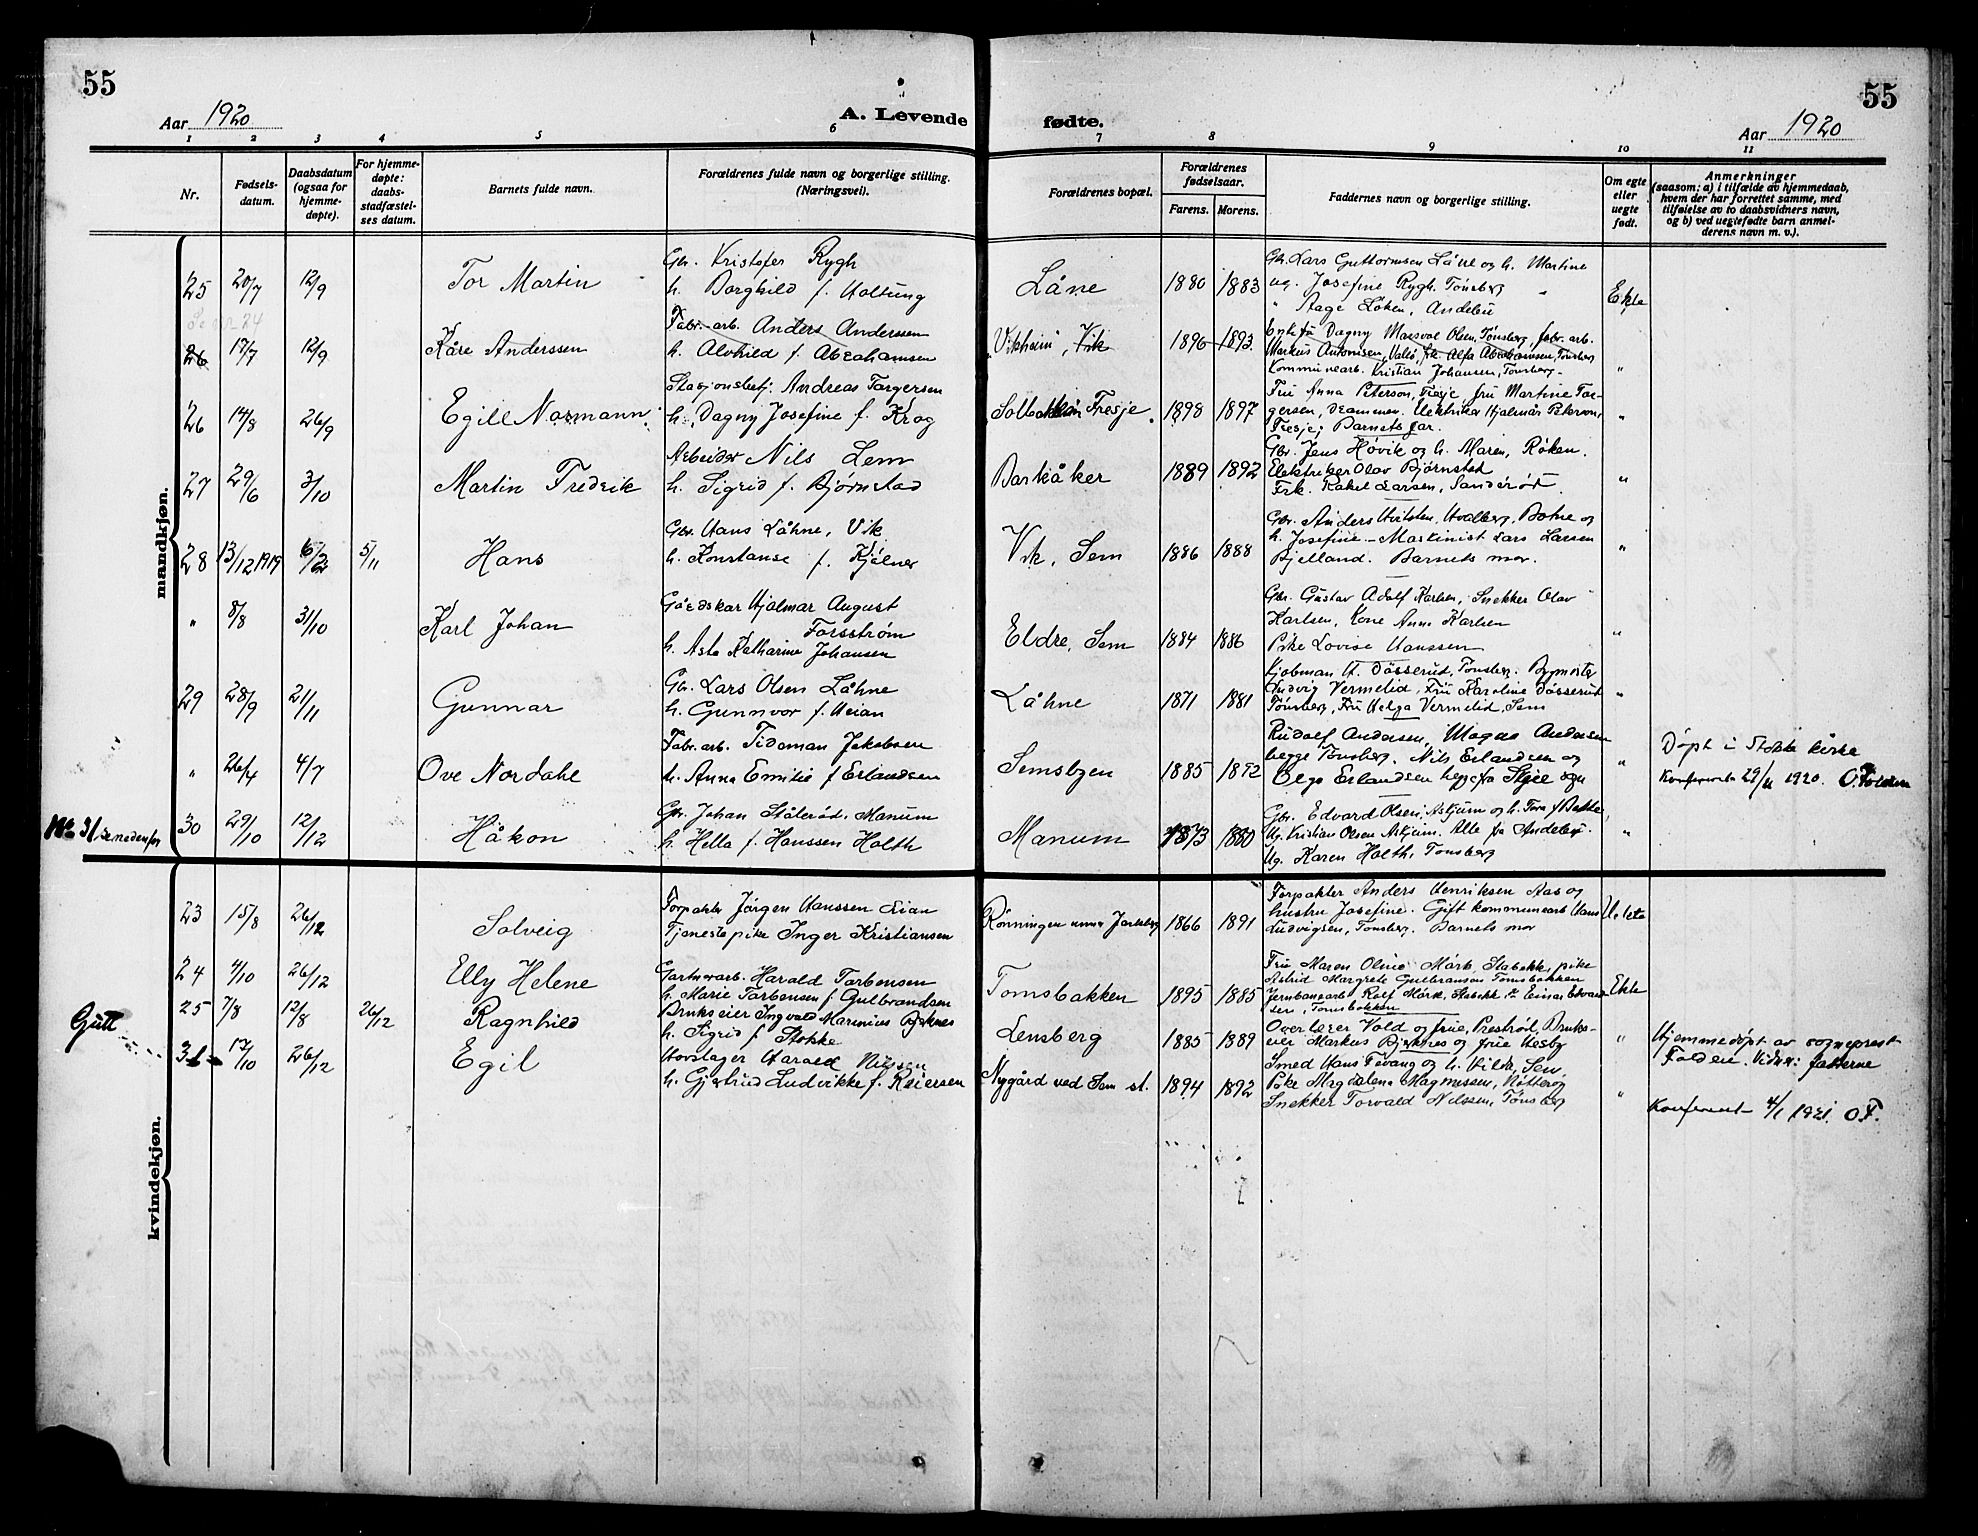 55
Aar 1920
A. Levende
1 2 3 4 5 6
Nr.
Fødsels-
datum.
Daabsdatum
(ogsaa for
hjemme-
døpte).
For hjemme-
døpte:
daabs-
stadfæstel-
ses datum.
Barnets fulde navn.
Forældrenes fulde navn og borgerlige stilling.
(Næringsvei).
55
fødte.
Aar 1920
7 8 9 10 11
Forældrenes bopæl.
Forældrenes
fødselsaar.
Farens. Morens.
Faddernes navn og borgerlige stilling.
Om egte
eller
uegte
født.
Anmerkninger
(saasom: a) i tilfælde av hjemmedaab,
hvem der har forrettet samme, med
tilføielse av to daabsvidners navn,
og b) ved uegtefødte barn anmel-
derens navn m. v.).
mandkjøn.
25 20/7 12/9 Tor Martin
Gbr. Kristofer Rygh
h. Borghild f. Holtung
Låne 1880 1883
Gbr. Lars Guttormsen Låne og h. Martine
ug. Josefine Rygh, Tønsberg
" Aage Løken, Andebu
Ekte
26 17/7 12/9 Kåre Anderssen
Fabr.-arb. Anders Anderssen
h. Alvhild f. Abrahamsen
Vikheim, Vik 1896 1893
Enkefru Dagny Olsen, Tønsberg, fabr. arb.
Markus Antonisen, Valø, frk. Alfa Abrahamsen, Tønsberg
Kommunearb. Kristian Johansen, Tønsberg
"
26 14/8 26/9 Egill Normann
Stasjonsbetj. Andreas Torgersen
h. Dagny Josefine f. Krog
Fresje 1898 1897
Fru Anna Peterson, Fresje, fru Martine Tor-
gersen, Drammen. Elektriker Hjalmar Peterson,
Fresje; Barnets far.
"
27 29/6 3/10 Martin Fredrik
Arbeider Nils Lem
h. Sigrid f. Bjørnstad
Barkåker 1889 1892
Gbr. Jens Høvik og h. Maren, Røken.
Elektriker Olav Bjørnstad
Frk. Rakel Larsen, Sanderød.
"
28 13/12 1919 6/2 5/11 Hans
Gbr. Hans Låhne, Vik
h. Konstanse f. Kjølner
Vik, Sem 1886 1888
Gbr. Anders Hvitsten, Hvalberg, Botne og
h. Josefine - Maskinist Lars Larsen
Bjelland. Barnets mor.
"
" 8/8 31/10 Karl Johan
Gårdskar Hjalmar August
Forsstrøm
h. Asta Katharine Johansen
Eldre, Sem 1884 1886
Gbr. Gustav Adolf Karlsen, Snekker Olav
Karlsen, Kone Anna Karlsen
Pike Lovise Hanssen
"
29 28/9 21/11 Gunnar
Gbr. Lars Olsen Låhne
h. Gunnvor f. Heian
Låhne 1871 1881
Kjøbman H. Dåsserud, Tønsberg. Bygmester
Ludvig Vermelid, Fru Karoline Dåsserud
Tønsberg, Fru Helga Vermelid, Sem
"
" 26/4 4/7 Ove Nordahl
Fabr. arb. Tideman Jakobsen
h. Anna Emilie f. Erlandsen
Semsbyen 1885 1892
Rudolf Andersen, Magna Andersen
begge Tønsberg. Nils Erlandsen og
Olga Erlandsen begge fra Skjee sogn
"
Døpt i Stokke kirke
Konferert 29/11 1920. O. Folden
No 31 se nedenfor
30 29/10 12/12 Håkon
Gbr. Johan Stålerød, Manum
h. Hella f. Hanssen Holth
Manum 1873 1880
Gbr. Edvard Olsen, Askjum og h. Tora f. Bakke,
Ug. Kristian Olsen Askjum. Alle fra Andebu.
Ug. Karen Holth, Tønsberg
"
kvindekjøn.
23 15/8 26/12 Solveig
Forpakter Jørgen Hanssen Lian
Tjenestepike Inger Kristiansen
Rønningen under Jarlsberg 1866 1891
Forpakter Anders Henriksen Aas og
hustru Josefine. Gift kommunearb. Hans
Ludvigsen, Tønsberg. Barnets mor
Uekte
24 4/10 26/12 Elly Helene
Gartnerarb. Harald Torbensen
h. Marie Torbensen f. Gulbrandsen
Tomsbakken 1895 1885
Fru Maren Oline Mørk, Stabekk, pike
Astrid Margrete Gulbransen Tomsbakken
Jernbanearb. Rolf Mørk, Stabekk Einar Edvard-
sen, Tomsbakken
Ekte
25 7/8 12/8 26/12 Ragnhild
Brukseier Ingvald Marinius Bjerknes
h. Sigrid f. Stokke
Lensberg 1885 1889
Overlærer Vold og frue, Prestrød, Bruks-
eier Markus Bjerknes og frue Hesby
"
Hjemmedøpt av sogneprest
Folden. Vidner: fadderne
Gutt
31 17/10 26/12 Egil
Hovslager Harald Nilssen
h. Gjertrud Ludvikke f. Reiersen
Nygård ved Sem st. 1894 1892
Smed Hans Fevang og h. Hilda, Sem,
Pike Magdalena Magnussen, Nøtterø
Snekker Torvald Nilssen, Tønsberg
"
Konferert 4/1 1921. O.F.